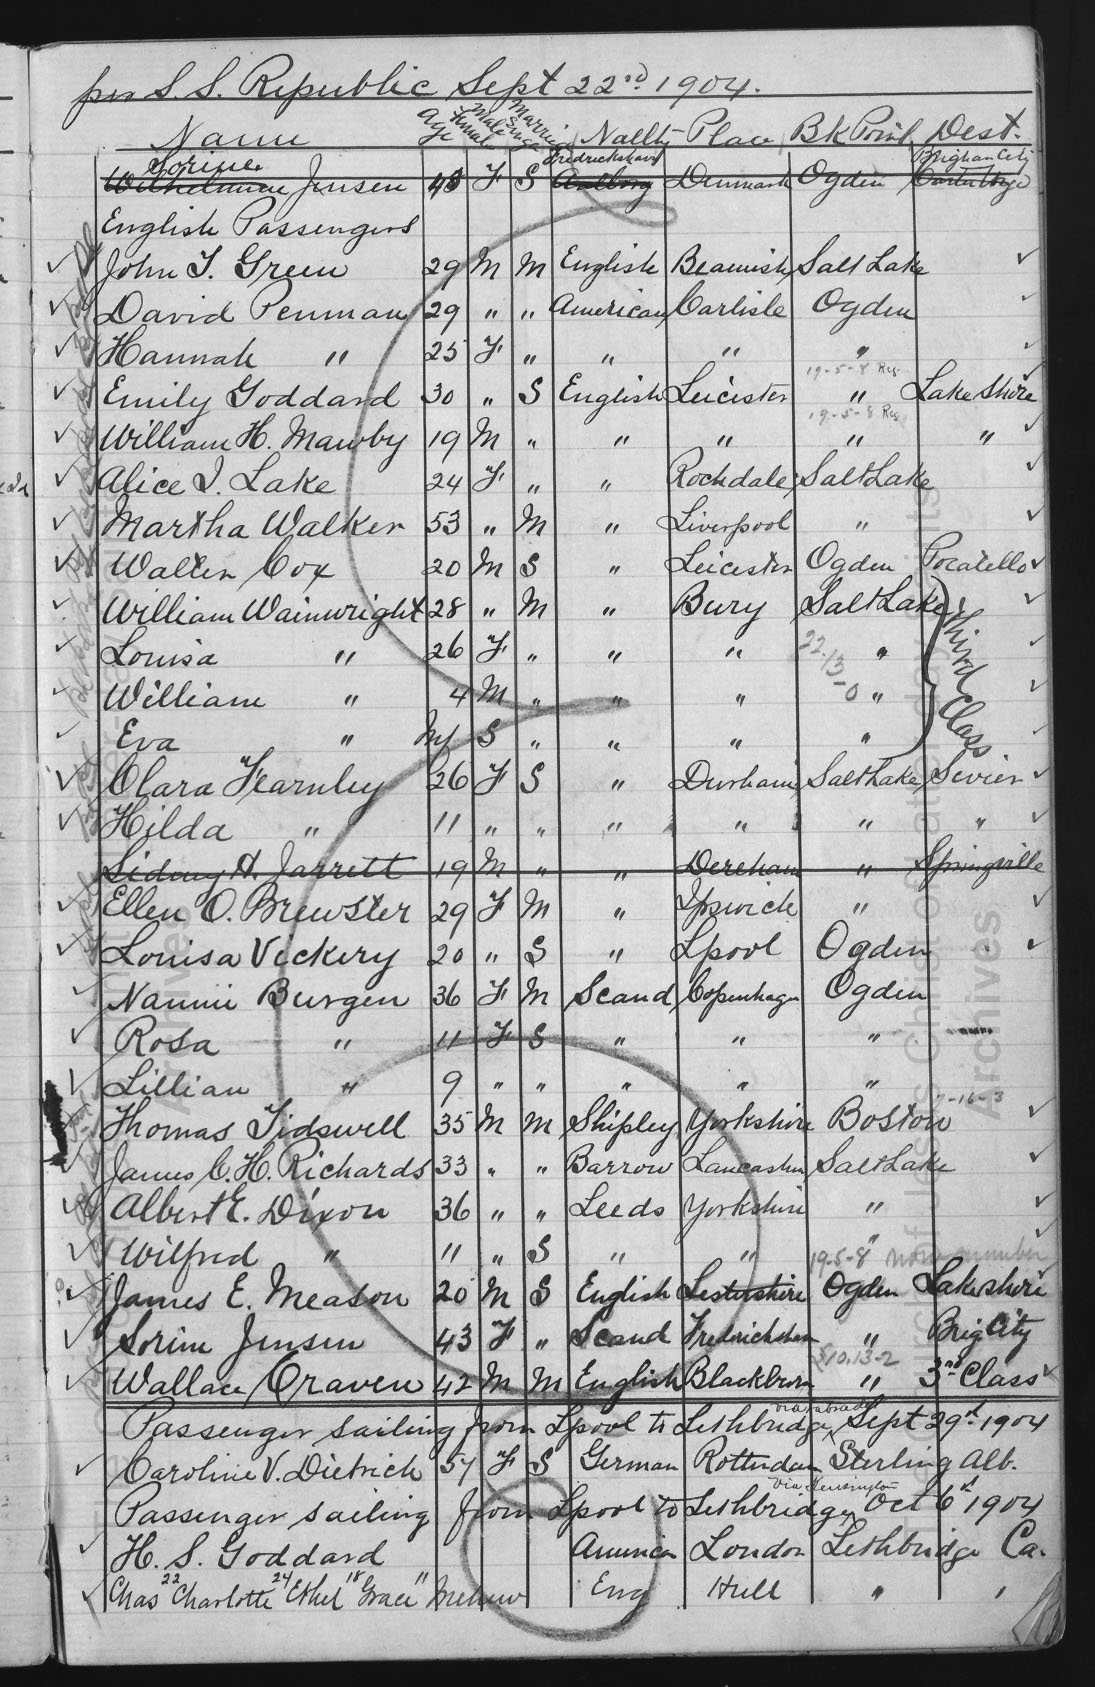 per S. S. Republic Sept 22nd 1904.
Name Age Male Female Married Single Natlty Place Bk Point Dest.
Sorine Fredrickshavn Brigham City
Wilhelmine Jensen 43 F S Aalborg Denmark Ogden
English Passengers
John T. Green 29 M M English Beamish Salt Lake
David Penman 29 " " American Carlisle Ogden
Hannah " 25 F " " " "
19-5-8 Reg
Emily Goddard 30 " S English Leicester " Lake Shore
19-5-8 Reg
William H. Mawby 19 M " " " " "
Alice I. Lake 24 F " " Rochdale Salt Lake
Martha Walker 53 " M " Liverpool "
Walter Cox 20 M S " Leicester Ogden Pocatello
William Wainwright 28 " M " Bury Salt Lake Third Class
Louisa " 26 F " " " "
22-13-0
William " 4 M " " " "
Eva " Inf S " " " "
Clara Fearnley 26 F S " Durham Salt Lake Sevier
Hilda " 11 " " " " " "
Sidney A. Jarrett 19 M " " Dereham " Springville
Ellen O. Brewster 29 F M " Ipswich "
Louisa Vickery 20 " S " Lpool Ogden
Nannie Burgen 36 F M Scand Copenhagn Ogden
Rosa " 11 F S " " "
Lillian " 9 " " " " "
7-16-3
Thomas Tidswell 35 M M Shipley Yorkshire Boston
James C. H. Richards 33 " " Barrow Lancashire Salt Lake
Albert E. Dixon 36 " " Leeds Yorkshire "
Wilfred " 11 " S " " "
19-5-8 number
James E. Meason 20 M S English Lestershire Ogden Lakeshore
Sorine Jensen 43 F " Scand Fredricksham " Brig City
$10.13-2
Wallace Craven 42 M M English Blackburn " 3rd Class
via Labrador
Passenger sailing from Lpool to Lethbridge, Sept 29th 1904
Caroline V. Dietrich 57 F S German Rotterdam Sterling Alb.
via Kensington
Passenger sailing from Lpool to Lethbridge, Oct 6th 1904
H. S. Goddard American London Lethbridge Ca.
Chas 22 Charlotte 24 Ethel 18 Grace 11 Eng Hull " "